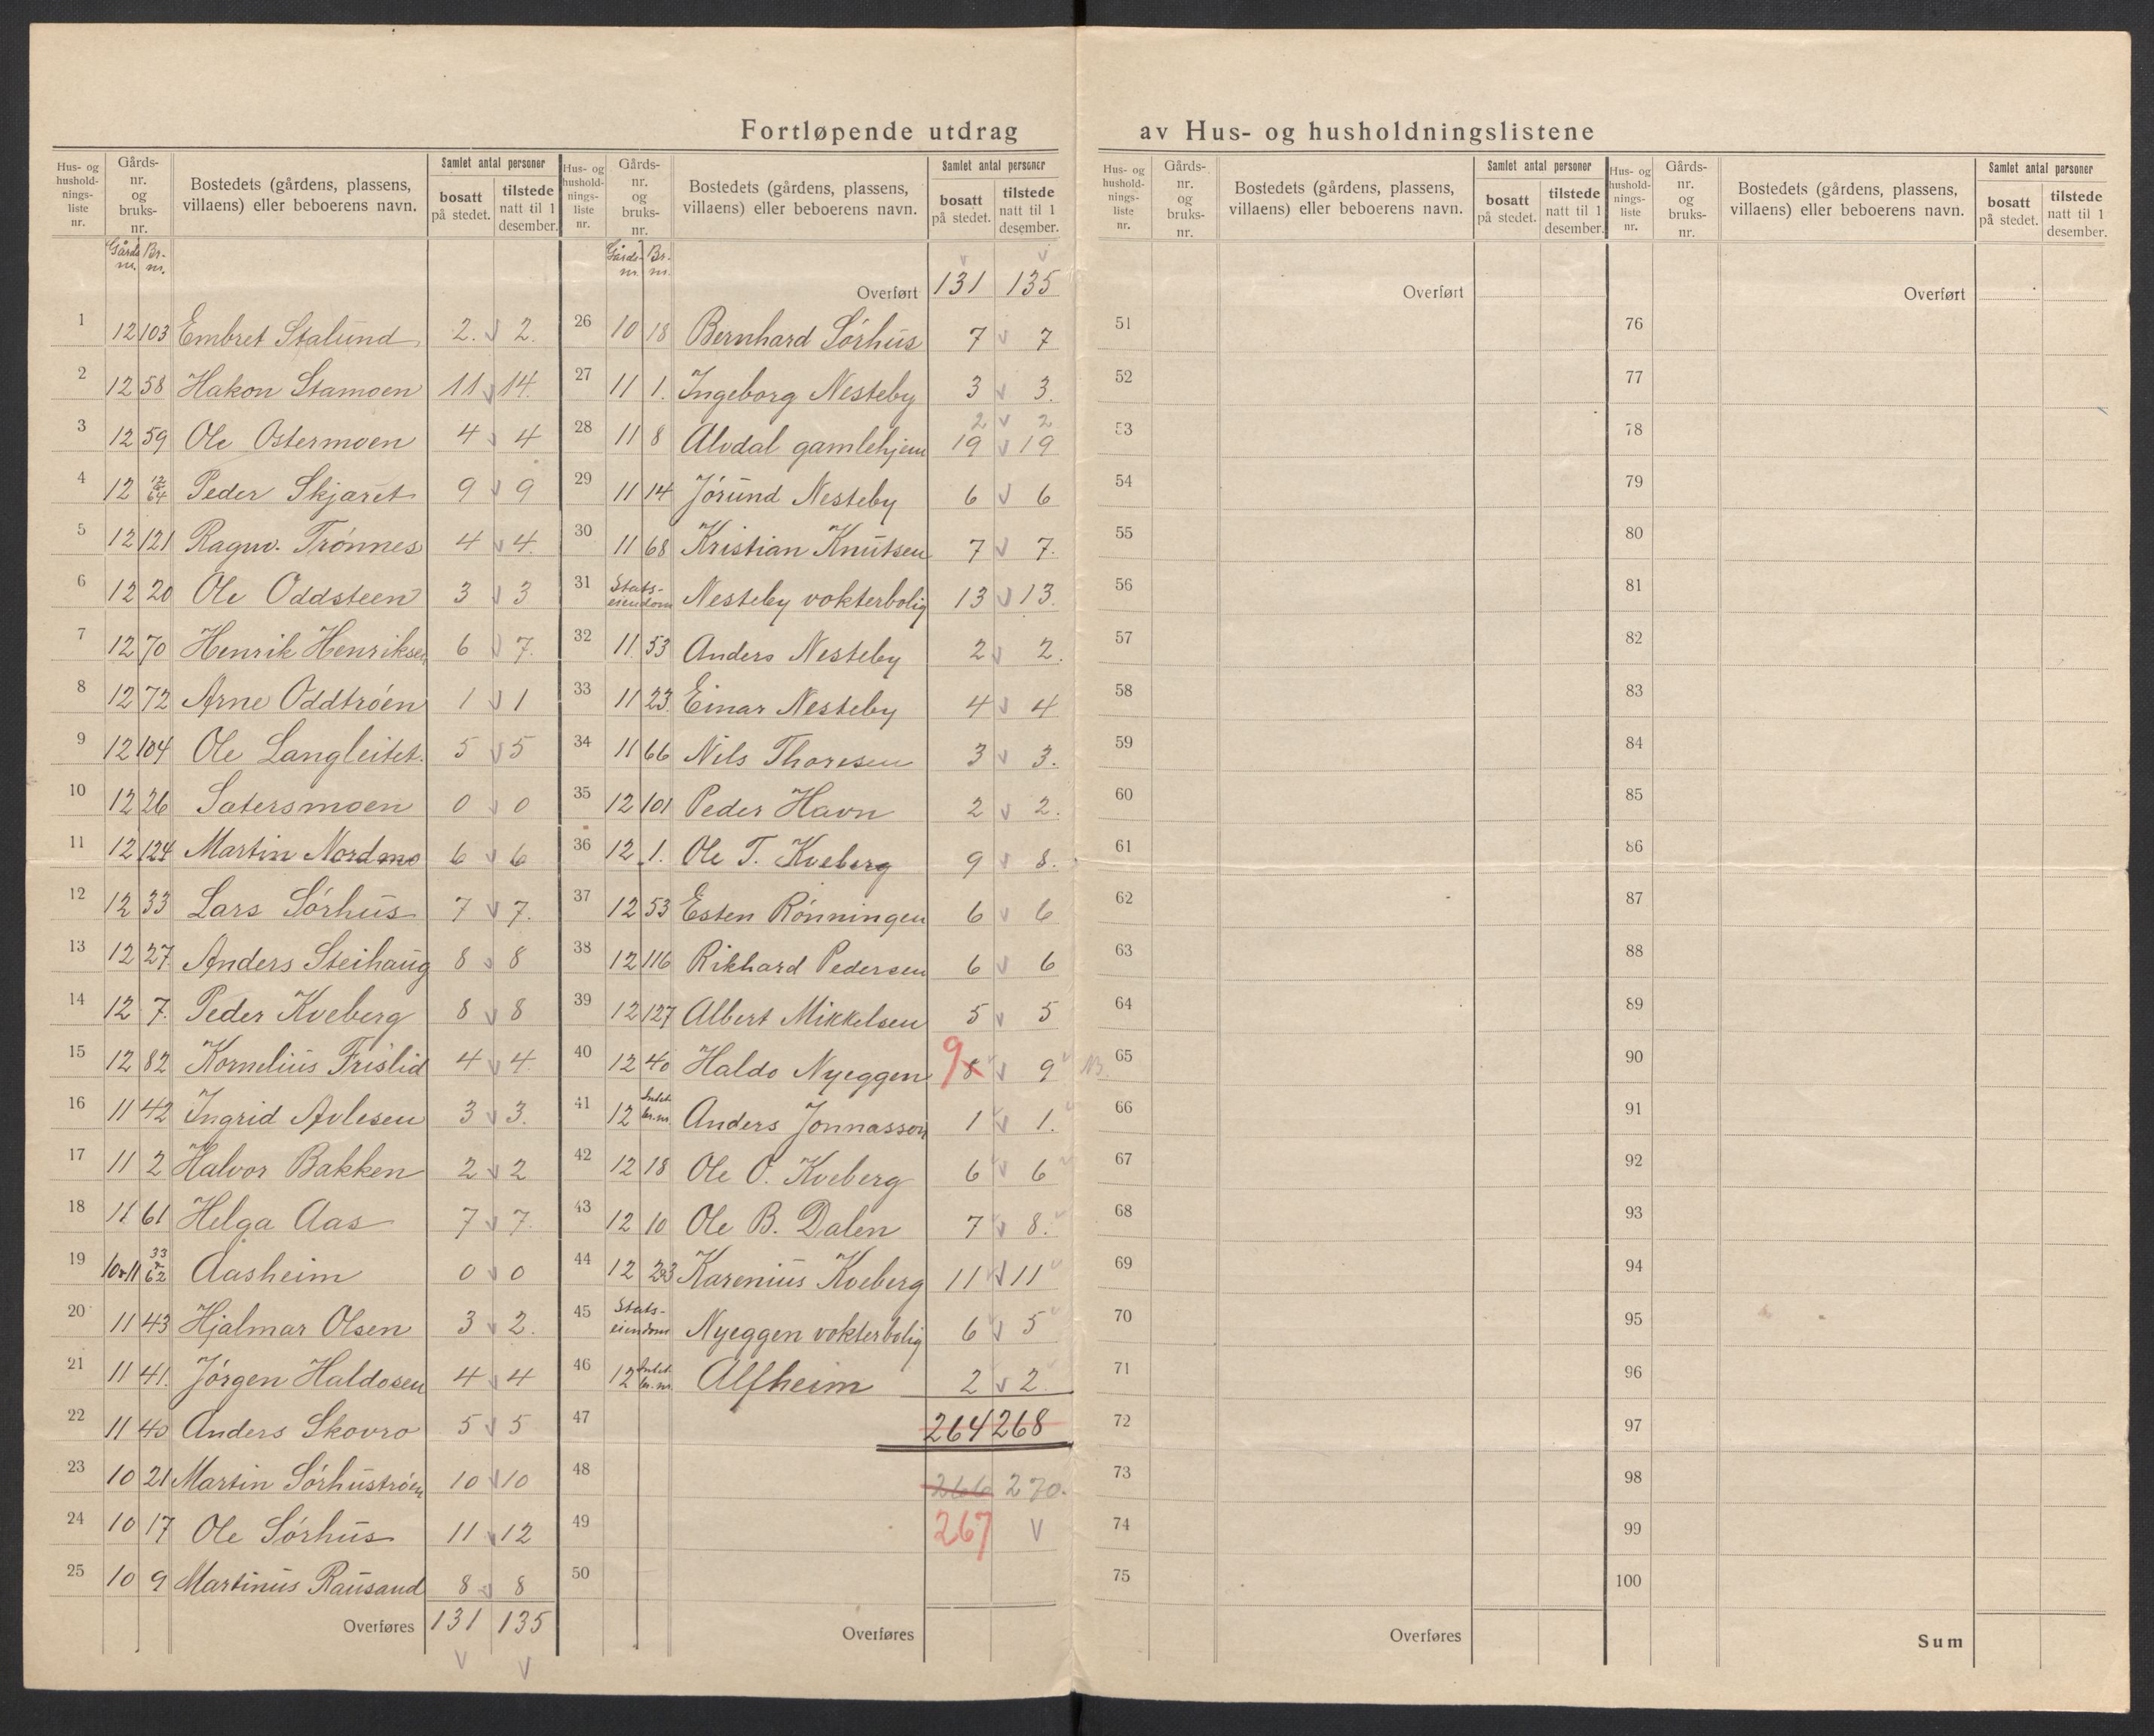 Fortløpende utdrag av Hus- og husholdningslistene
Hus- og husholdnings-liste nr. | Gårds-nr. og bruks-nr. | Bostedets (gårdens, plassens, villaens) eller beboerens navn. | Samlet antal personer | bosatt på stedet. | tilstede natt til 1 desember.
Gårds nr. | Br.-nr.
1 12 103 Embret Stalund 2. v 2.
2 12 58 Hakon Stamoen 11 v 14.
3 12 59 Ole Ostermoen 4 v 4
4 12 12/64 Peder Skjæret 9 v 9
5 12 121 Ragnv. Trønnes 4 v 4
6 12 20 Ole Oddsteen 3 v 3
7 12 70 Henrik Henriksen 6 v 7.
8 12 72 Arne Oddtrøen 1 v 1
9 12 104 Ole Langleitet. 5 v 5
10 12 26 Satersmoen 0 v 0
11 12 124 Martin Nordmo 6 v 6
12 12 33 Lars Sørhus 7 v 7.
13 12 27. Anders Steihaug 8 v 8
14 12 7. Peder Kveberg 8 v 8
15 12 82 Kornelius Frislid 4 v 4
16 11 42 Ingrid Avlesen 3 v 3.
17 11 2 Halvor Bakken 2 v 2
18 11 61 Helga Aas 7 v 7.
19 10+11 33+62 Aasheim 0 v 0
20 11 43 Hjalmar Olsen 3 v 2.
21 11 41. Jørgen Haldosen 4 v 4
22 11 40 Anders Skovro 5 v 5
23 10 21 Martin Sørhustrøen 10 v 10
24 10 17 Ole Sørhus 11 v 12
25 10 9 Martinus Rausand 8 v 8
Overføres 131 135
v v
Hus- og husholdnings-liste nr. | Gårds-nr. og bruks-nr. | Bostedets (gårdens, plassens, villaens) eller beboerens navn. | Samlet antal personer | bosatt på stedet. | tilstede natt til 1 desember.
Gårds-nr. | Br.-nr.
v v
Overført 131 135
26 10 18 Bernhard Sørhus 7 v 7
27 11 1. Ingeborg Nesteby 3 v 3.
2 v 2
28 11 8 Alvdal gamlehjem 19 v 19
29 11 14 Jørund Nesteby 6 v 6
30 11 68 Kristian Knutsen 7 v 7.
31 Stats-eiendom Nesteby vokterbolig 13 v 13.
32 11. 53 Anders Nesteby 2 v 2.
33 11 23. Einar Nesteby 4 v 4
34 11 66 Nils Thoresen 3 v 3.
35 12 101 Peder Havn 2 v 2.
36 12 1. Ole T. Kveberg 9 v 8.
37 12 53 Esten Rønningen 6 v 6
38 12 116 Rikhard Pedersen 6 v 6
39 12 127 Albert Mikkelsen 5 v 5
40 12 40 Haldo Nyeggen 9 8 v 9 v NB.
41 12 Intet br.nr. Anders Jonnasson 1 v 1. v
42 12 18 Ole O. Kveberg 6 v 6 v
43 12 10 Ole B. Dalen 7 v 8. v
44 12 23 Karenius Kveberg 11 v 11 v
45 Stats-eiendom Nyeggen vokterbolig 6 v 5 v
46 12 Intet br.nr. Alfheim 2 v 2
47 264 268
48 266 270.
49 267 v
50
Overføres
Hus- og husholdnings-liste nr. | Gårds-nr. og bruks-nr. | Bostedets (gårdens, plassens, villaens) eller beboerens navn. | Samlet antal personer | bosatt på stedet. | tilstede natt til 1 desember.
Overført
51
52
53
54
55
56
57
58
59
60
61
62
63
64
65
66
67
68
69
70
71
72
73
74
75
Overføres
Hus- og husholdnings-liste nr. | Gårds-nr. og bruks-nr. | Bostedets (gårdens, plassens, villaens) eller beboerens navn. | Samlet antal personer | bosatt på stedet. | tilstede natt til 1 desember.
Overført
76
77
78
79
80
81
82
83
84
85
86
87
88
89
90
91
92
93
94
95
96
97
98
99
100
Sum